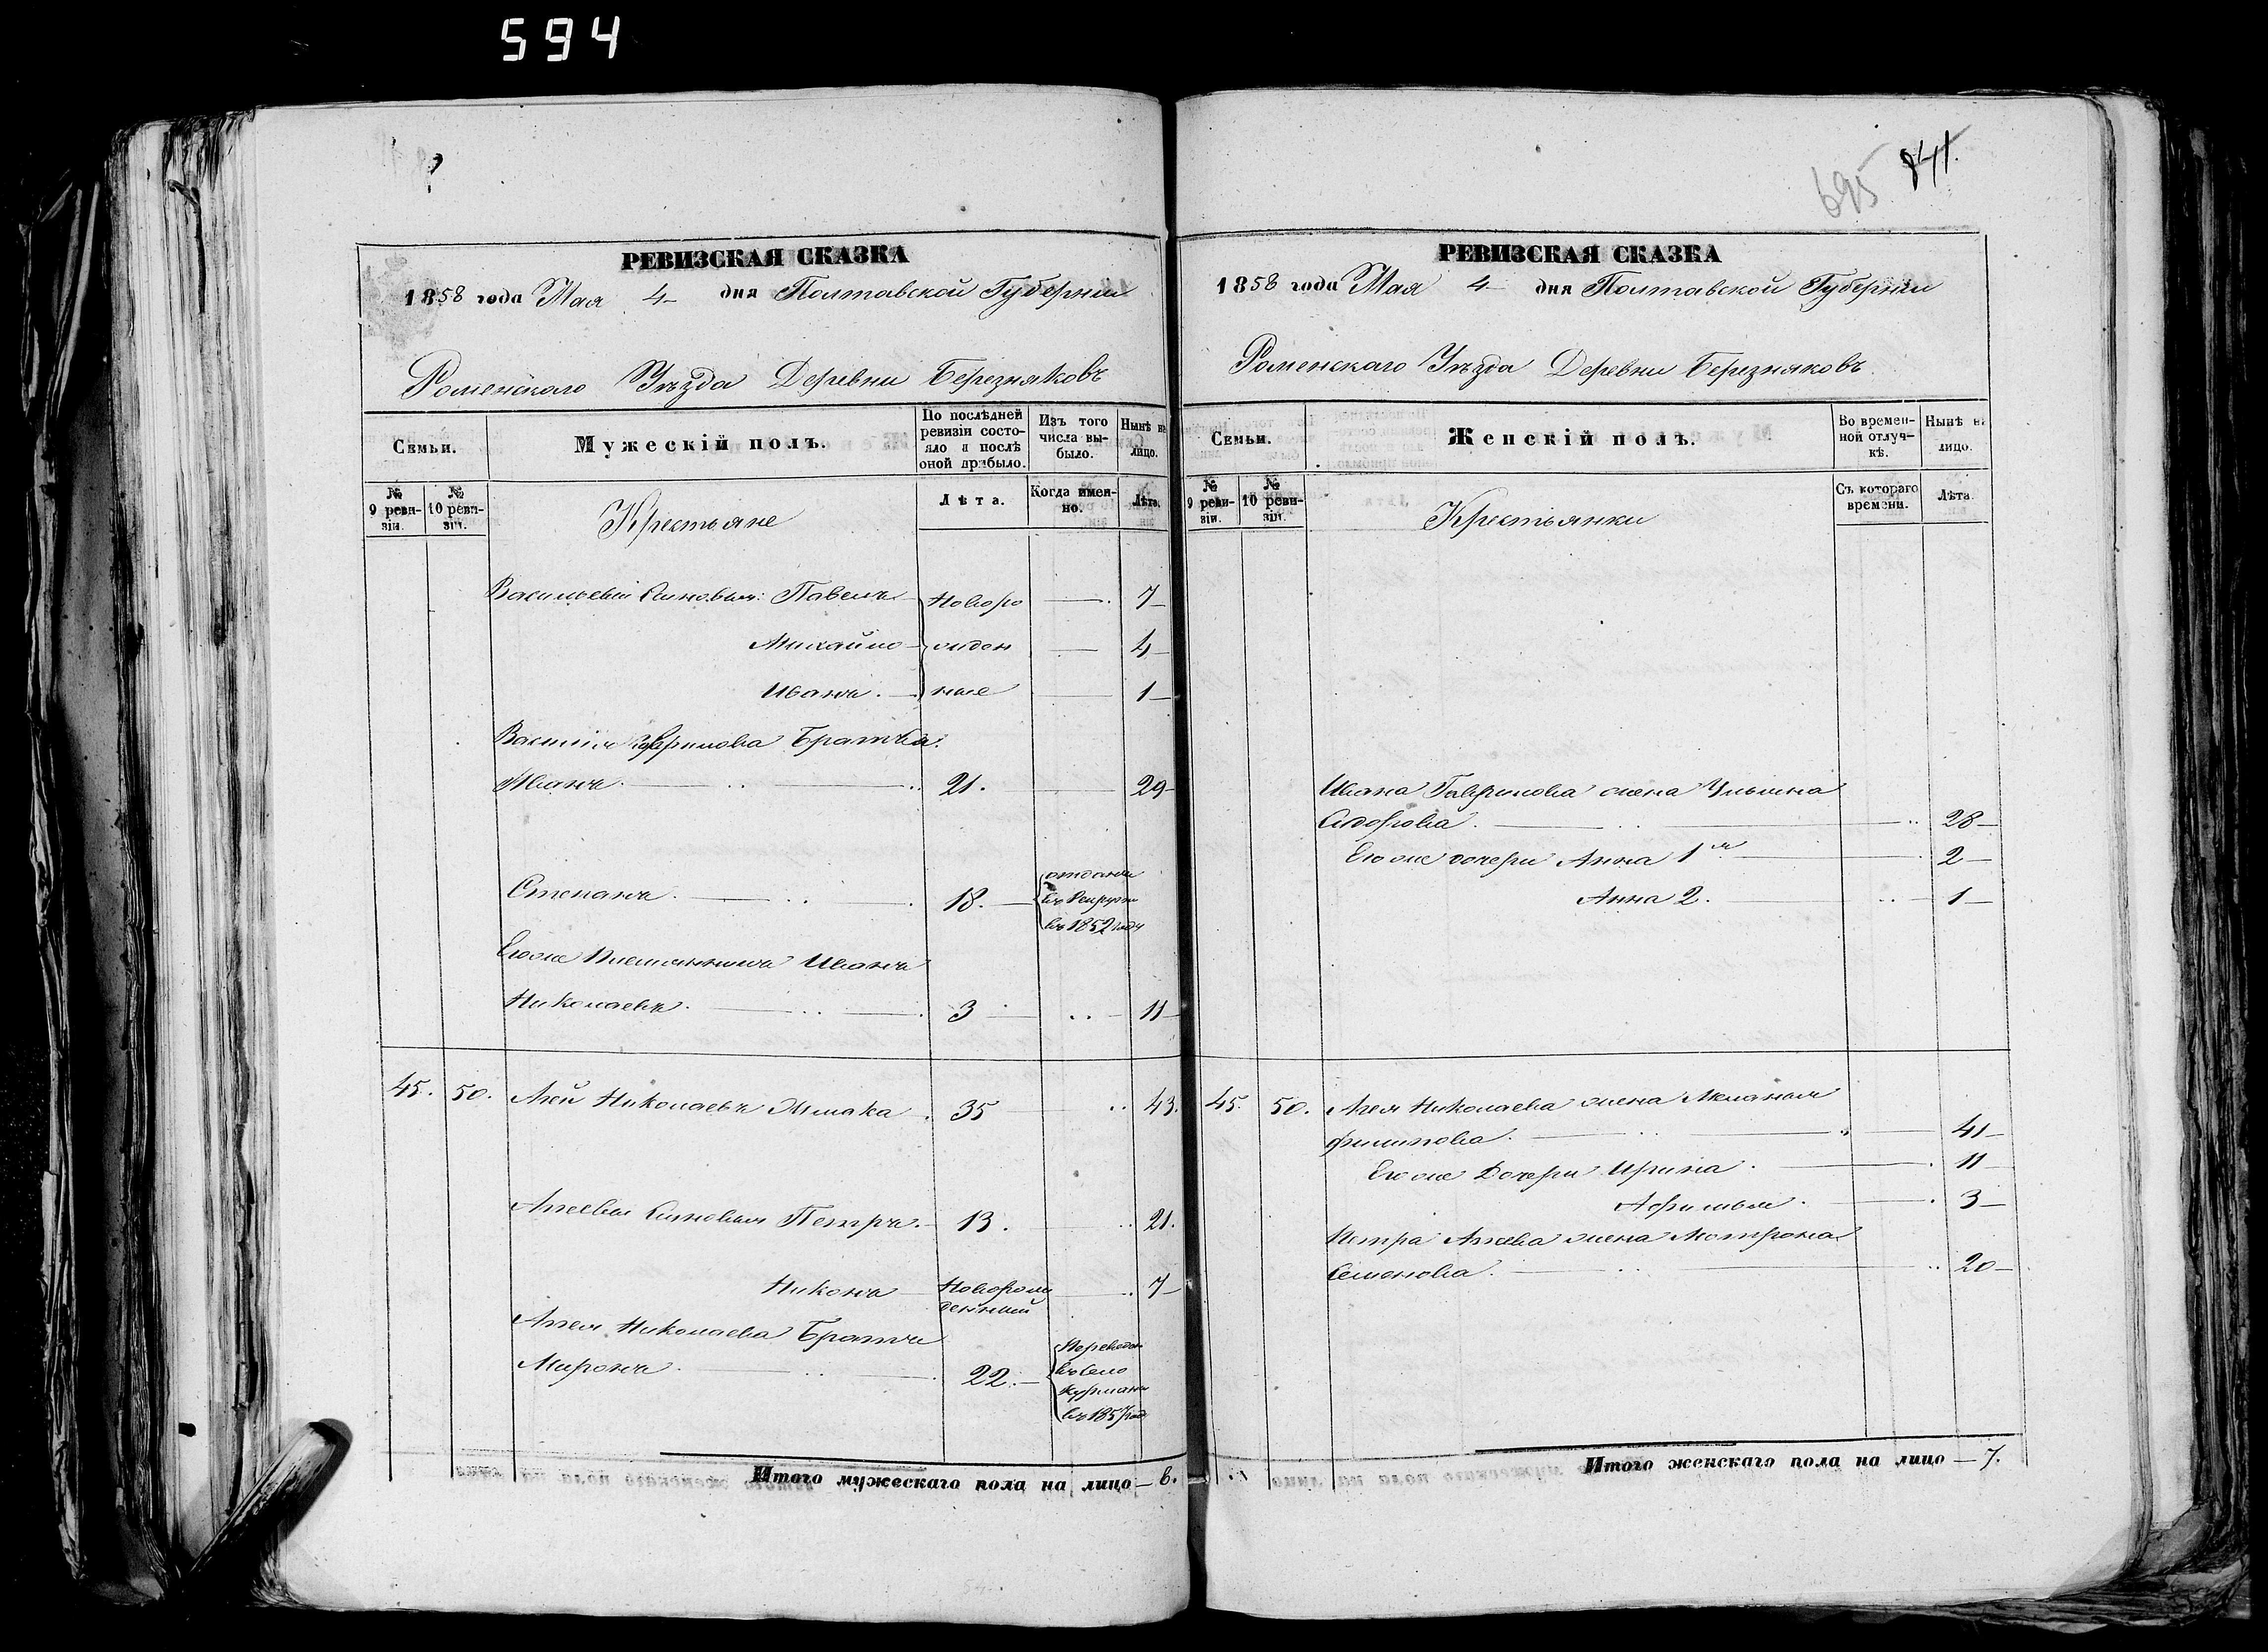 594
695 841.
РЕВИЗСКАЯ СКАЗКА
1858 года Мая 4 дня Полтавской Губернии
Роменскаго Уѣзда Деревни Березняковъ
Семьи.
Мужескій полъ.
По послѣдней ревизіи состояло и послѣ оной прибыло.
Изъ того числа выбыло.
Нынѣ на лицо.
№ 9 ревизіи.
№ 10 ревизіи.
Крестьяне
Лѣта.
Когда именно.
Лѣта.
Васильевы Сыновья: Павелъ Новоро 7
Михайло жден 4
Иванъ. ные 1
Василія Гаврилова Братья:
Иванъ. 21. 29
Степанъ. 18. отданъ
въ Рекруты
въ 1852 году
Егоже Племянникъ Иванъ
Николаевъ. 3 11
45. 50. Агей Николаевъ 35 43.
Агеевы Сыновья Петръ. 13. 21.
Никонъ Новорож
денный 7
Агея Николаева Братъ
Миронъ. 22. Переведен
въ Село
въ 1857 год
Итого мужескаго пола на лицо — 6.
РЕВИЗСКАЯ СКАЗКА
1858 года Мая 4 дня Полтавской Губернии
Роменскаго Уѣзда Деревни Березняковъ
Семьи.
Женскій полъ.
Во временной отлучкѣ.
Нынѣ на лицо.
№ 9 ревизіи.
№ 10 ревизіи.
Крестьянки
Съ котораго времени.
Лѣта.
Ивана Гаврилова жена Ульяна
Сидорова. 28
Егоже дочери Анна 1я 2
Анна 2. 1
45. 50. Агея Николаева жена
Филипова. 41
Егоже Дочери Ирина. 11
Афимья. 3
Петра Агеева жена Мотрона
Семенова. 20
Итого женскаго пола на лицо — 7.